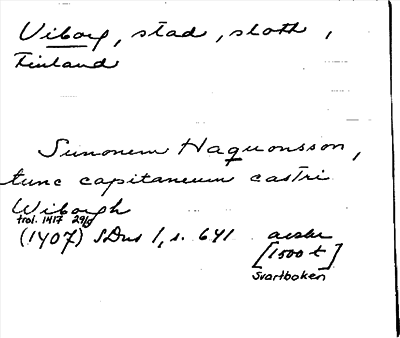 Viborg, stad, slott,
Finland
Sunonem Haquonsson,
tunc capitaneum castri
Wiborgh
trol. 1417 29/6
(1407) SDns 1, s. 641 avskr
[1500 t]
Svartboken